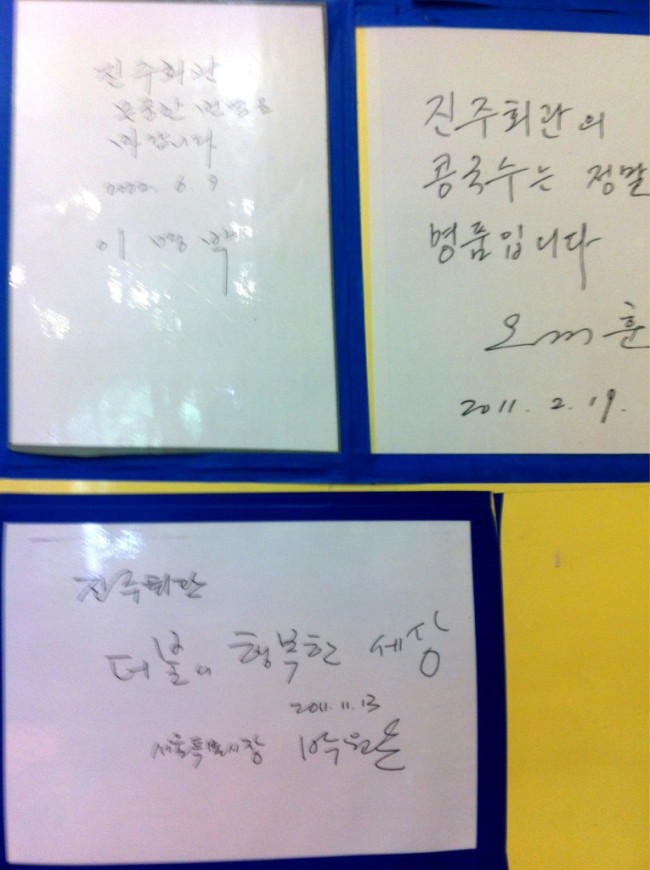 진주회관
무궁한 번영을
바랍니다
2002. 6. 9
이명박
진주회관의
콩국수는 정말
명품입니다
오세훈
2011. 2. 19.
진주회관
더불어 행복한 세상
2011. 11. 13
서울특별시장 박원순